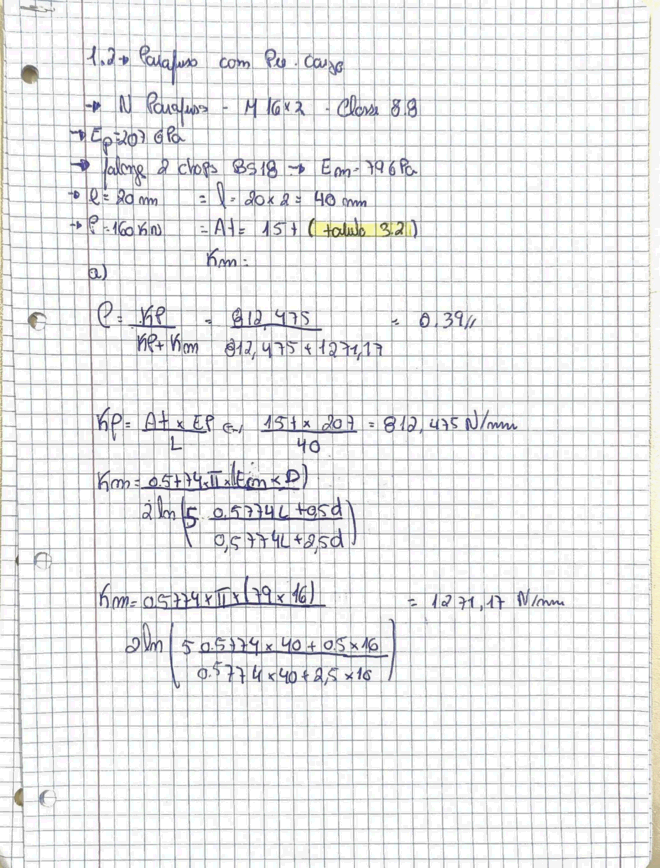 1.2 → Parafuso com Pré-Carga
→ N Parafusos - M 16x2 - Classe 8.8
→ Ep=207 GPa
→ 2 chapas BS18 → Em = 79 GPa
→ l = 20 mm = l = 20 x 2 = 40 mm
→ P = 160 KN = At = 157 ( tabela 3.2 )
Km =
a)
C = KP / KP + Km = 812,475 / 812,475 + 1271,17 = 0.39//
Kp = At x EP / L 157 x 207 / 40 = 812,475 N/mm
Km = 0.5774 x π x (Em x D) / 2 ln (5 0.5774L + 0,5d / 0,5774L + 2,5d)
Km = 0,5774 x π x (79 x 16) / 2 ln (5 0.5774 x 40 + 0.5 x 16 / 0.5774 x 40 + 2,5 x 16) = 1271,17 N/mm